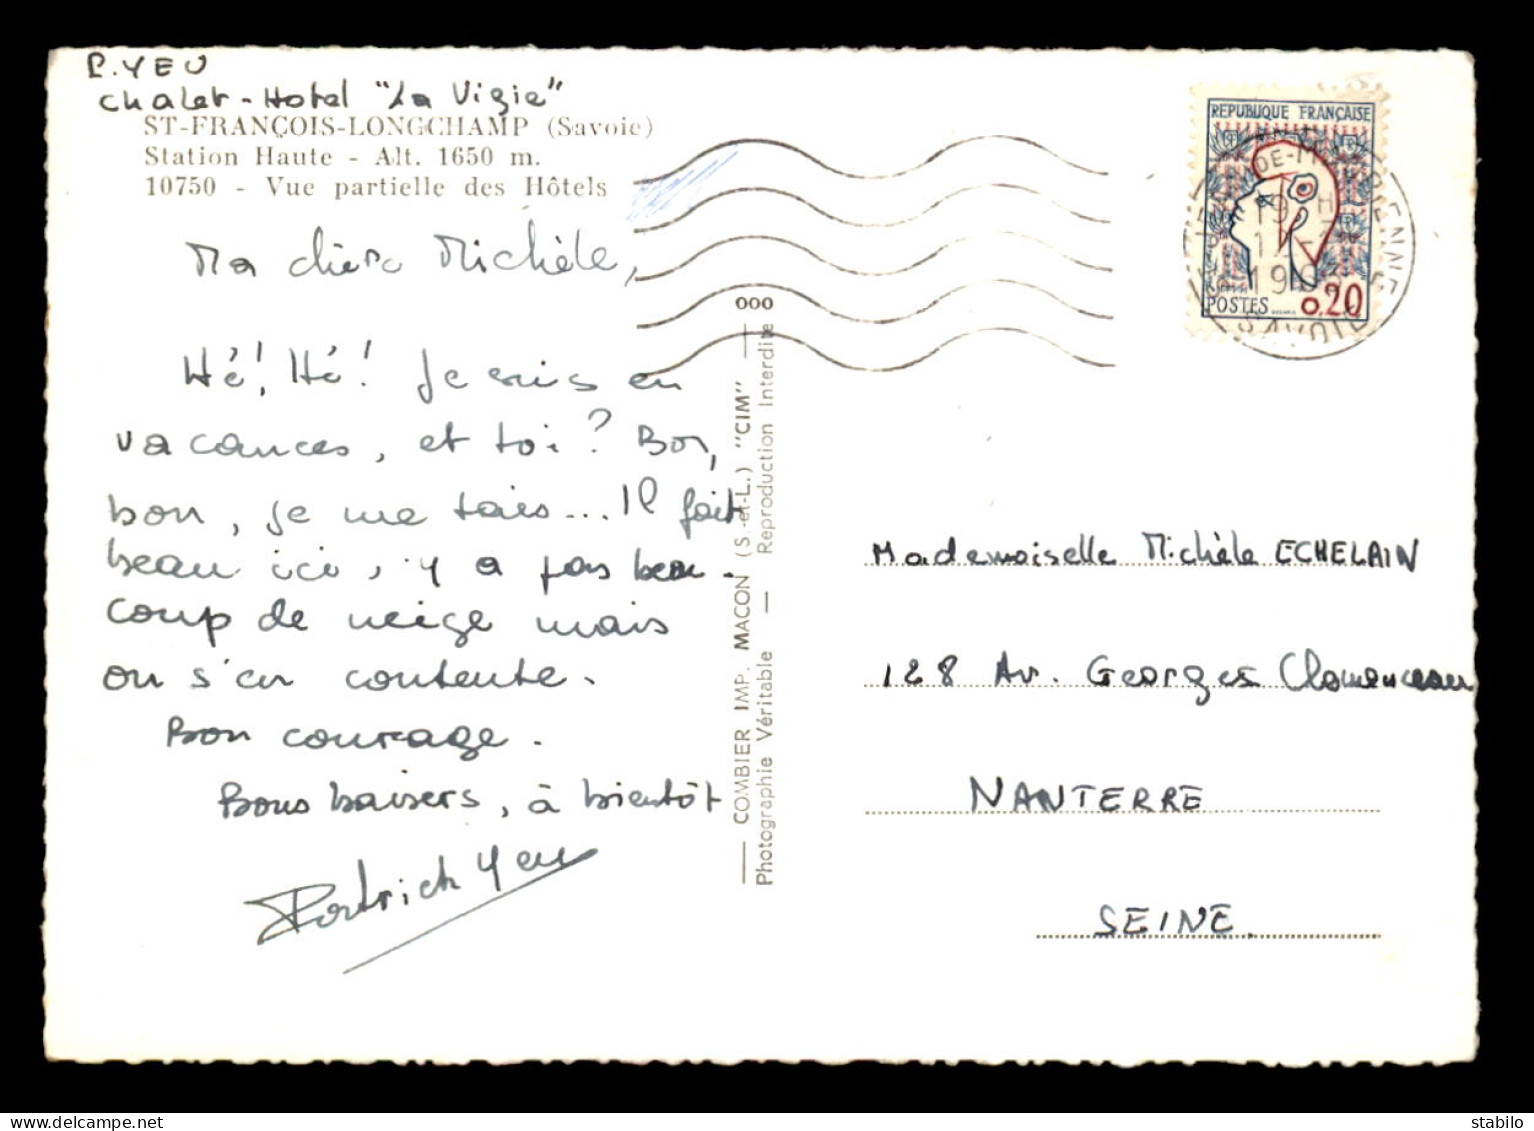 P. YEU
Chalet-Hotel "La Vigie"
ST-FRANÇOIS-LONGCHAMP (Savoie)
Station Haute - Alt. 1650 m.
10750 - Vue partielle des Hôtels
Ma chère Michèle,
Hé! Hé! Je suis en
vacances, et toi? Bon,
bon, je me tais... Il fait
beau ici, y a pas beau-
coup de neige mais
on s'en contente.
Bon courage.
Bons baisers, à bientôt
Patrick Yeu
COMBIER IMP. MACON (S.-et-L.) "CIM"
Photographie Véritable — Reproduction Interdite
REPUBLIQUE FRANÇAISE
POSTES 0.20
SAVOIE
Mademoiselle Michèle ECHELAIN
128 Av. Georges Clemenceau
NANTERRE
SEINE.
stabilo_stamps